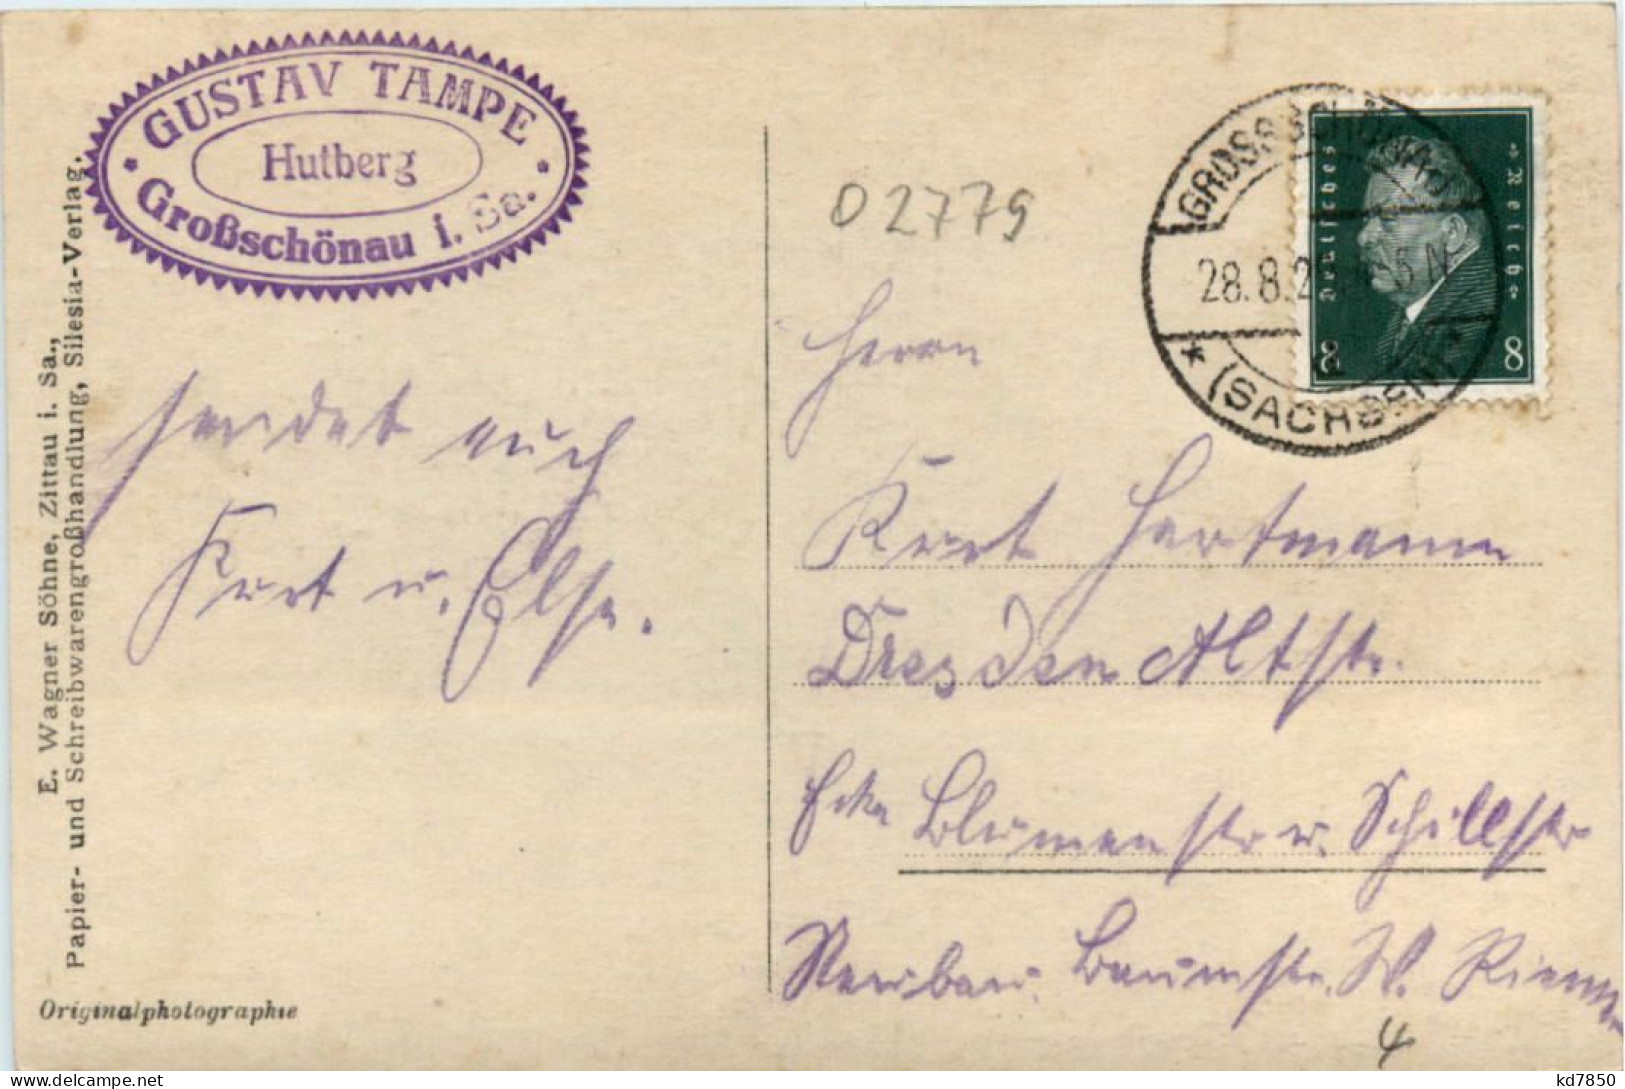 GUSTAV TAMPE
Hutberg
Großschönau i. Sa.
E. Wagner Söhne, Zittau i. Sa.,
Papier- und Schreibwarengroßhandlung, Silesia-Verlag.
sendet euch
Kurt u. Else.
Originalphotographie
02779
GROSSSCHÖNAU
28.8.2 5 N
(SACHSEN)
Deutsches Reich
8 8
Herrn
Kurt Hartmann
Dresden Altst.
Ecke Blumenstr u. Schillstr
Neubau. Baumstr. W. Riemer
4
kd7850